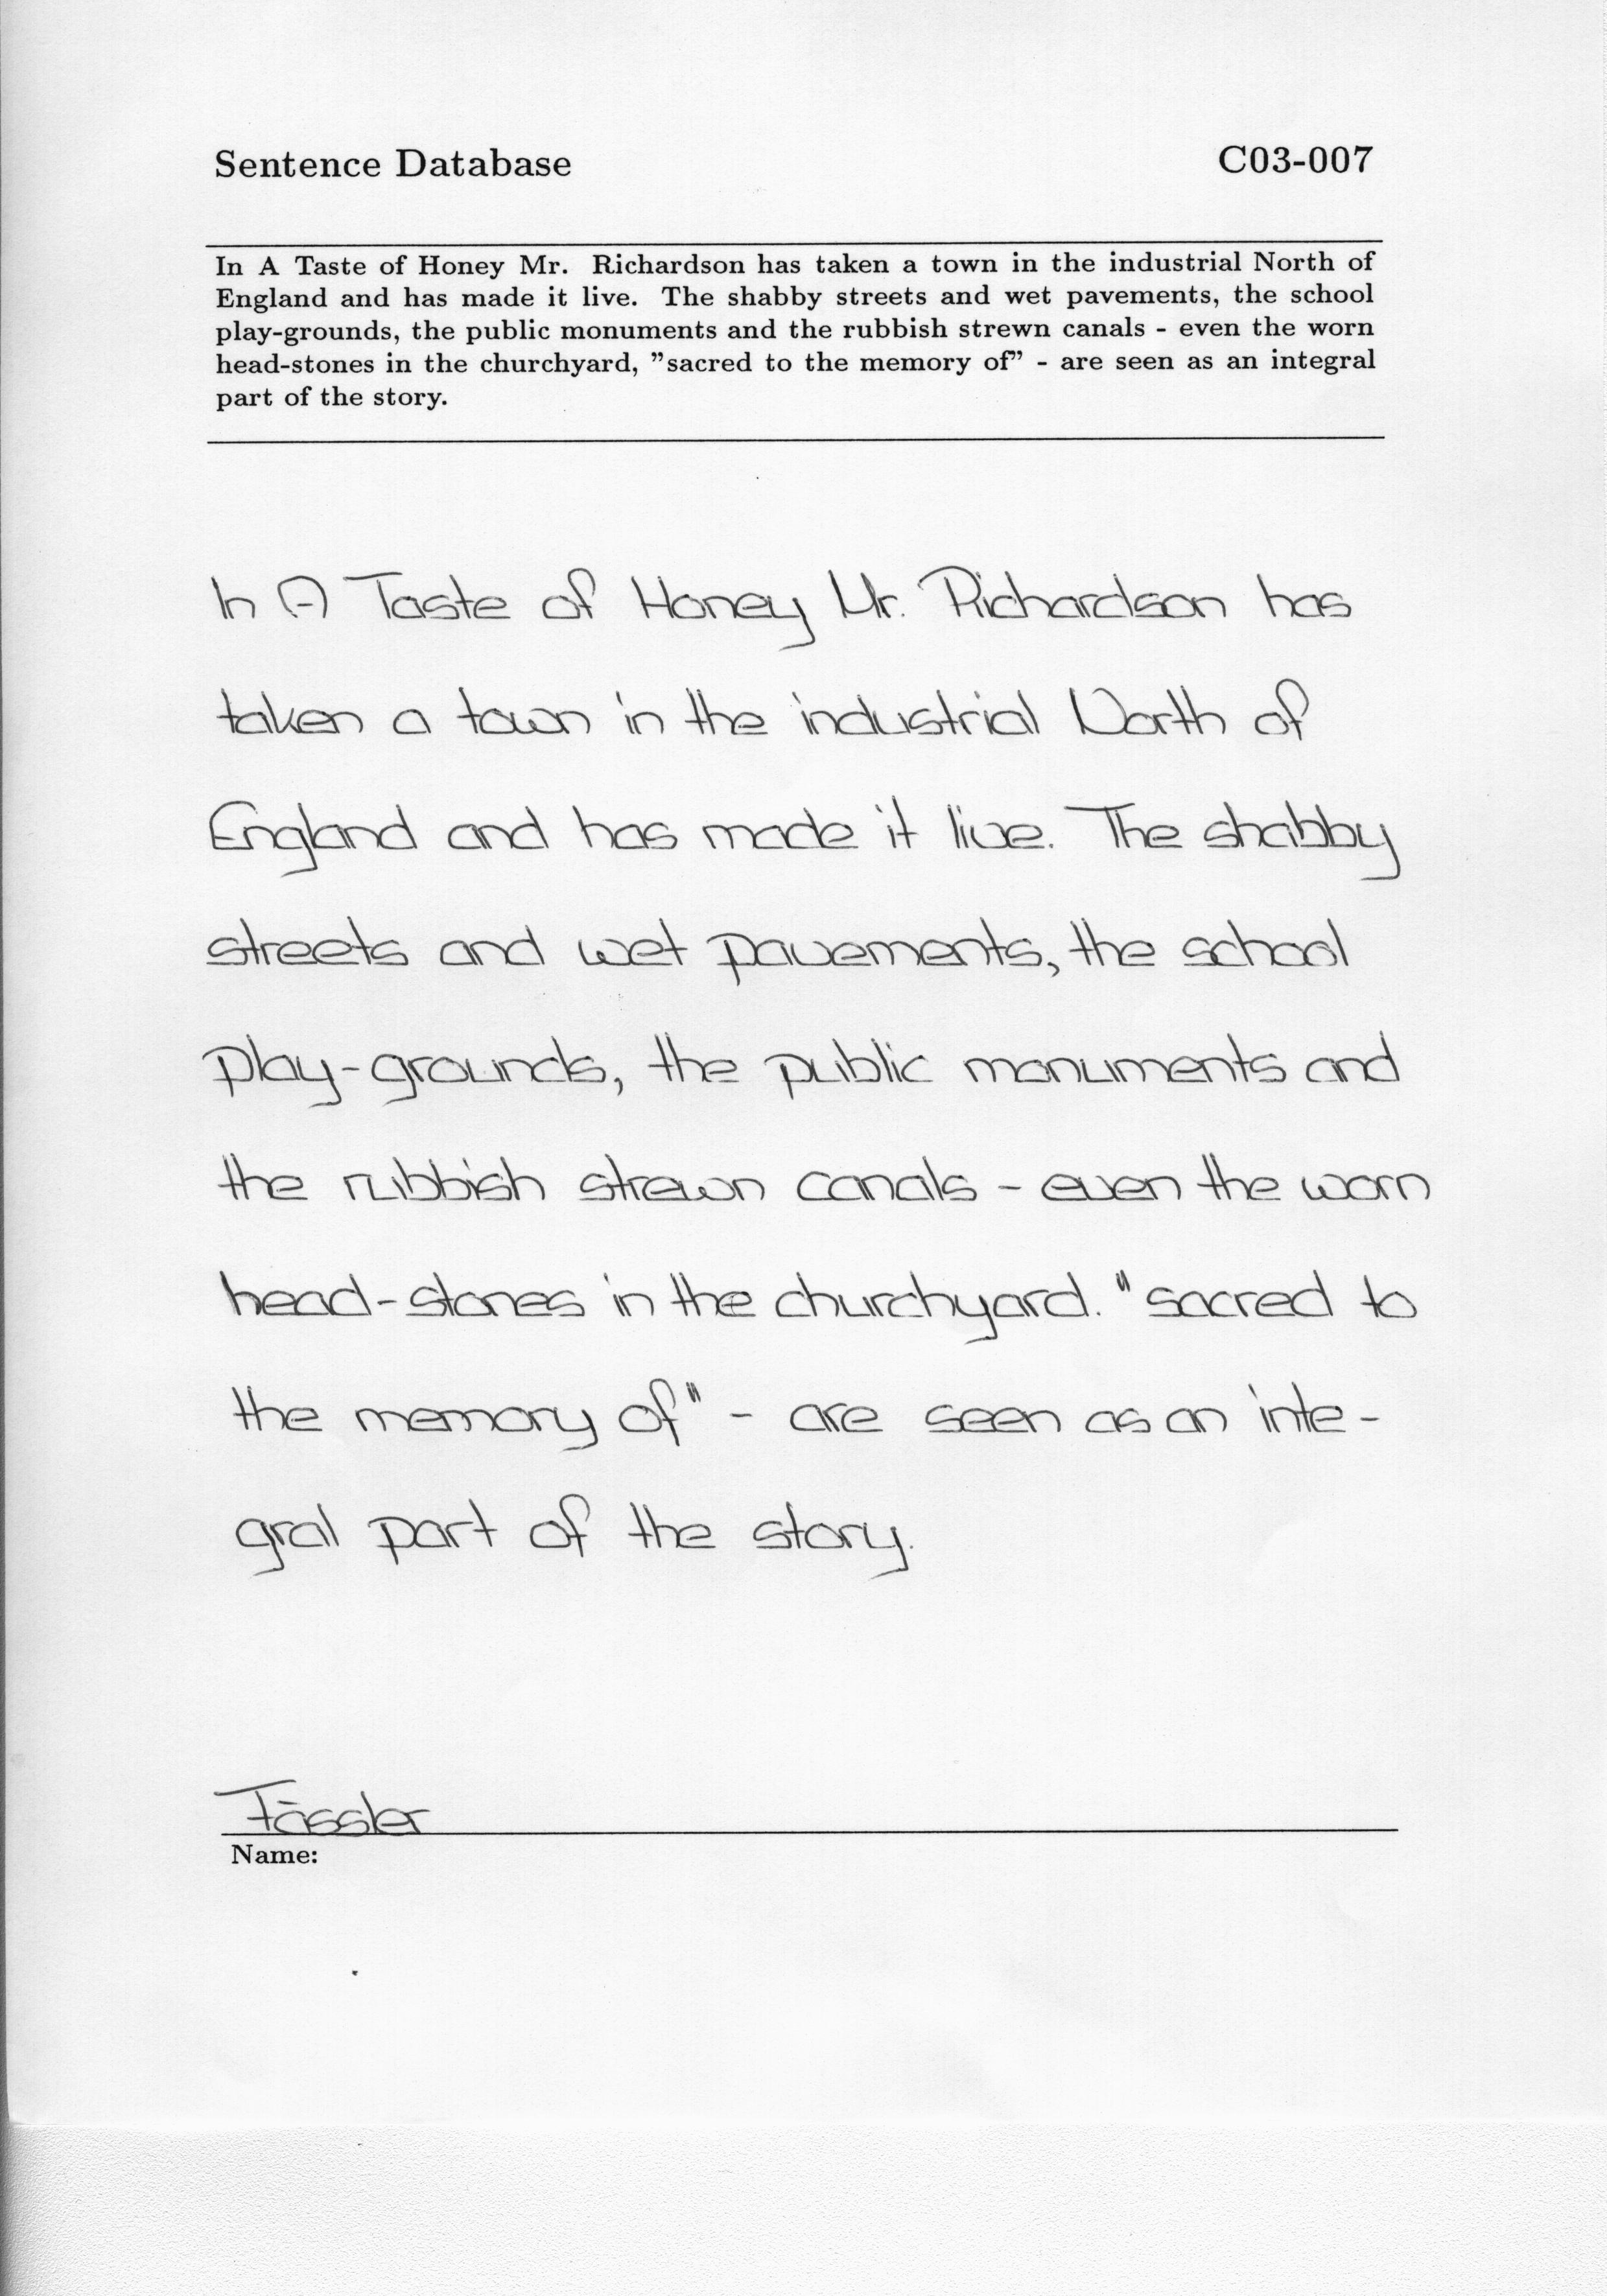 Sentence Database C03-007
In A Taste of Honey Mr. Richardson has taken a town in the industrial North of
England and has made it live. The shabby streets and wet pavements, the school
play-grounds, the public monuments and the rubbish strewn canals - even the worn
head-stones in the churchyard, "sacred to the memory of" - are seen as an integral
part of the story.
In A Taste of Honey Mr. Richardson has
taken a town in the industrial North of
England and has made it live. The shabby
streets and wet pavements, the school
play-grounds, the public monuments and
the rubbish strewn canals - even the worn
head-stones in the churchyard. "sacred to
the memory of" - are seen as an inte-
gral part of the story.
Fässler
Name: